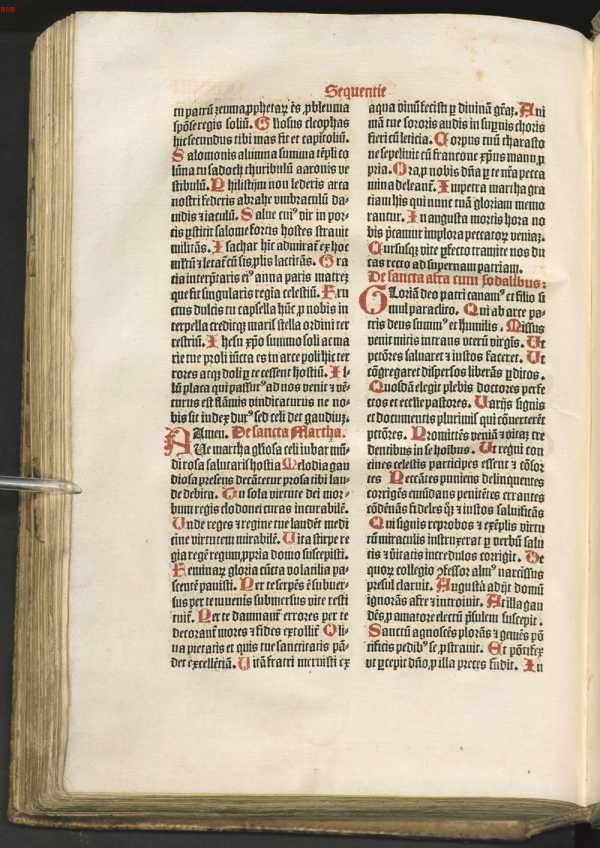 Sequentie
tu patrū ⁊ eum a ꝓphetaꝝ ēs ꝓbleuma
spōse regis soliū. Gliosus cleophas
hic secundus tibi mas fit et capitoliū.
Salomonis alumna summa tēpli co
lūna tu sadoch thuribulū aaronis ve
stibulū. Philistijm non lederis arca
nostri federis abrahe vmbraculū da-
uidis ⁊ iaculū. Salue cuiꝰ vir in por-
tis ystirit salome fortis hostes strauit
militās. Isachar hīc admirat̄ ex hoc
tia interp̄taris eiꝰ anna paris matrez
que fit singularis regia celestiū. Fru
ctus dulcis tu capsella hūc ꝓ nobis in
terpella credicqꝫ maris stella ordini ter
restriū. Ihesu xp̄o summo soli acma
rie tue proli iūcta es in arce poli hic ter
rores acqꝫ doli ꝑ te cessent hostiū. Il-
lū placa qui passurꝰ ad nos venit ⁊ vē-
turus est flāmis vindicaturus ne no-
bis sit index durꝰ sed celi det gaudiuꝫ.
Amen. De sancta Martha.
Aue martha gl̄iosa celi iubar mū-
di rosa salutaris hostia Melodia gau
diosa presens decātetur prosa tibi lau-
de debita. Tu sola virtute dei mor-
bum regis clodouei curas incurabilē.
Unde reges ⁊ regine tue laudēt medi
cine virtutem mirabilē. Uita stirpe re
gia regē regum, ꝓpria domo suscepisti.
Feminaꝝ gloria cūcta volatilia pa-
scentē pauisti. Per te serpēs ē subuer-
sus per te iuuenis submersus vite resti
tuit̄. Per te damnant̄ errores per te
decorant̄ mores ⁊ fides extollit̄ Oli-
ua pietatis et quis tue sanctitatis pā-
det excellētiā. Uitā fratri meruisti ex
aqua vinū fecisti ꝑ diuinā gr̄aꝫ. Ani
mā tue sororis audis in suꝑnis choris
fieri cū leticia. Corpus tuū tharasco
ne sepeliuit cū francone xp̄us manu ꝓ
pria. Ora ꝓ nobis dn̄a ꝑ te nr̄a pecca
mina deleant̄. Impetra martha gra
tiam his qui nunc tuā gloriam memo
rantur. In angusta mortis hora no
bis p̄camur implora peccatoꝝ veniaꝫ.
Cursusqꝫ vite ꝑfecto tramite nos du
cas recto ad supernam patriam.
De sancta affra cum sodalibus:
Gloriā deo patri canamꝰ et filio si
mul paraclito. Qui ab arce pa-
tris deus summꝰ et humilis. Missus
venit mitis intrans vterū virgīs. Ut
pctōres saluaret ⁊ iustos faceret. Ut
cōgregaret dispersos liberās ꝑditos.
Quosdā elegit plebis doctores perfe
ctos et eccl̄ie pastores. Uarijs signis
et documentis plurimis qui cōuerterēt
pctōres. Promittēs veniā ⁊ vitaꝫ cre
dentibus in se hoībus. Ut regni con
ciues celestis participes essent ⁊ cōsor
tes Peccātes puniens delinquentes
corrigēs eiusdans penitētes errantes
cōdēnās fideles qꝫ ⁊ iustos saluificās
Qui signis reprobos ⁊ exēplis virtu
tū miraculis instruxerat ꝑ verbū salu
tis ⁊ vitatis incredulos corrigit. De
quorꝫ collegio cōfessor almꝰ narcissus
presul claruit. Augustā adijt domū
ignorās afre ⁊ introiuit. At illa gau
dēs, ꝓ amatore electū p̄sulem suscepit.
Sanctū agnoscēs plorās ⁊ gemēs pō
tificis pedibꝰ se, ꝓstrauit. Et pōtifex
vt ꝑcepit dn̄o, ꝓ illa preces fudit. In